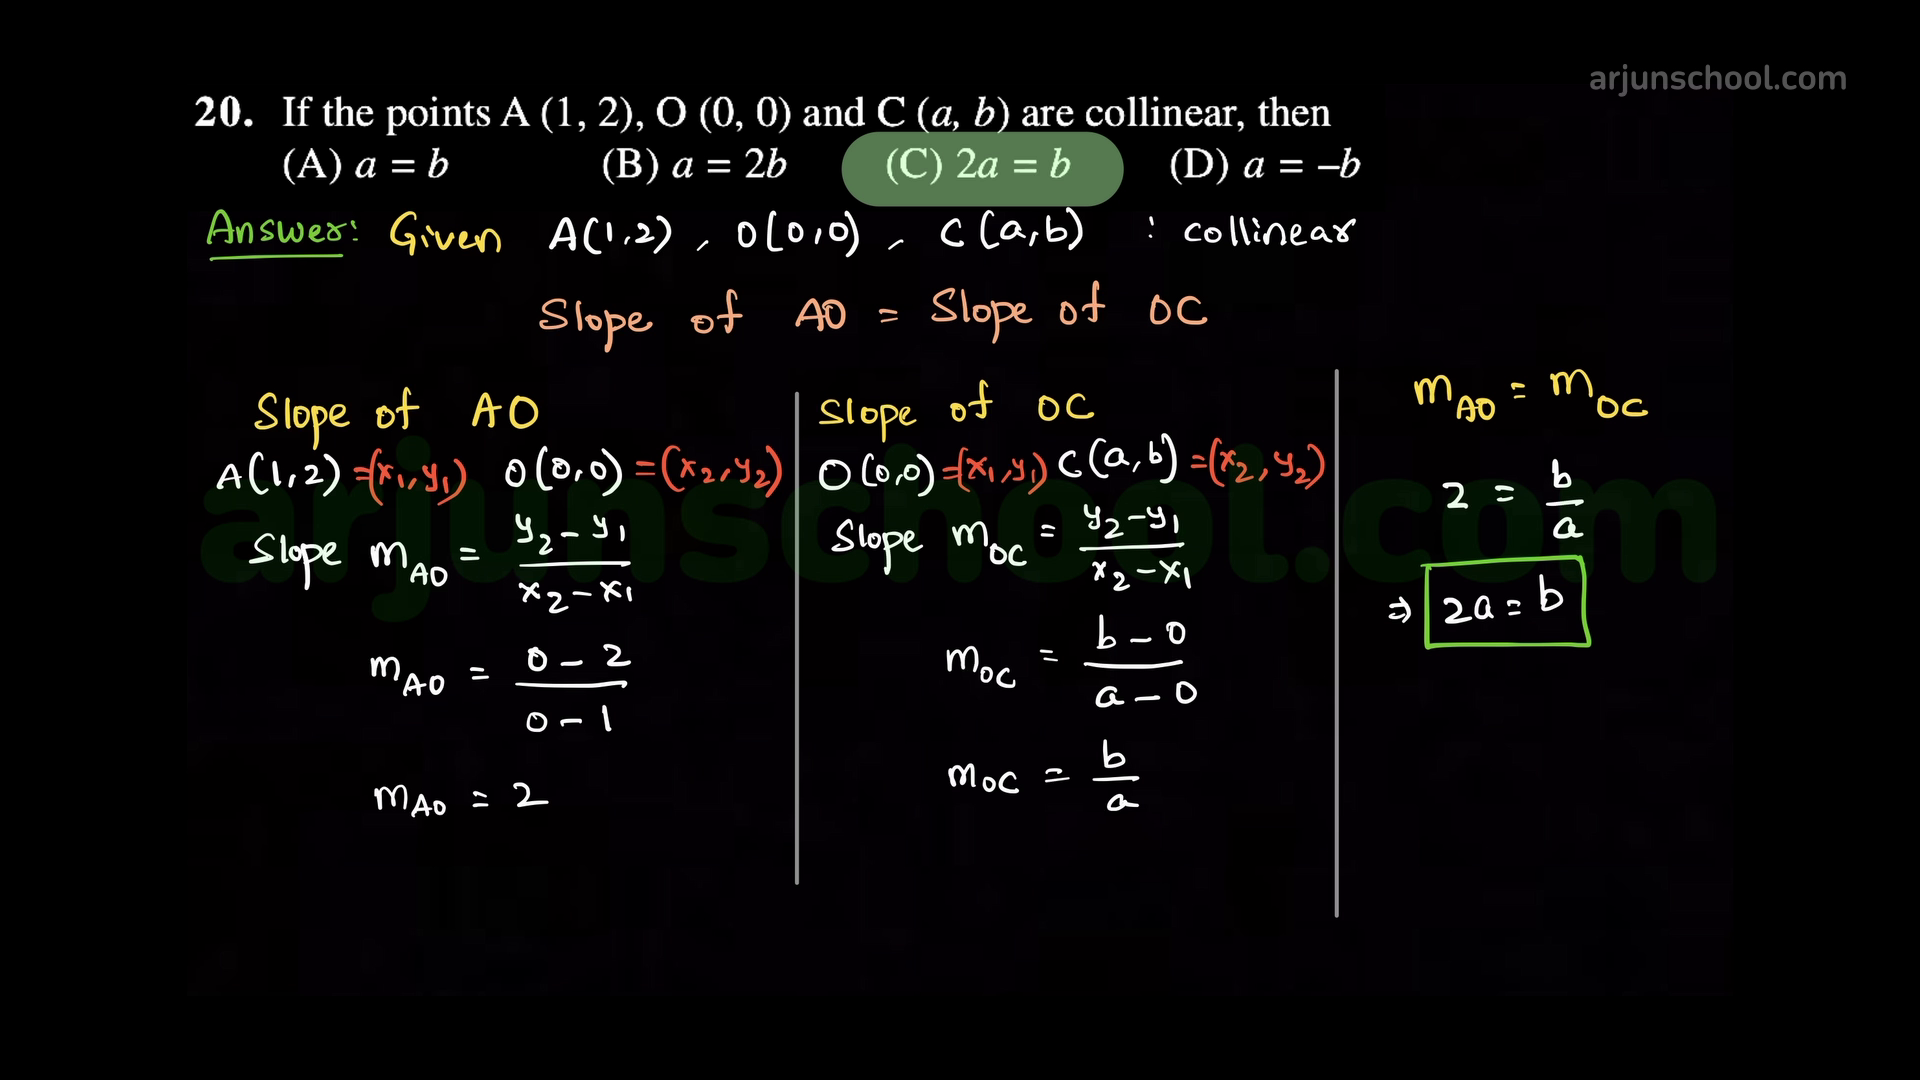 arjunschool.com
20. If the points A (1, 2), O (0, 0) and C (a, b) are collinear, then
(A) a = b (B) a = 2b (C) 2a = b (D) a = –b
Answer: Given A(1,2), O(0,0), C(a,b) : collinear
Slope of AO = Slope of OC
Slope of AO
A(1,2) =(x₁,y₁) O(0,0) =(x₂,y₂)
Slope m_AO = (y₂-y₁)/(x₂-x₁)
m_AO = (0-2)/(0-1)
m_AO = 2
Slope of OC
O(0,0) =(x₁,y₁) C(a,b) =(x₂,y₂)
Slope m_OC = (y₂-y₁)/(x₂-x₁)
m_OC = (b-0)/(a-0)
m_OC = b/a
m_AO = m_OC
2 = b/a
⇒ 2a = b
arjunschool.com